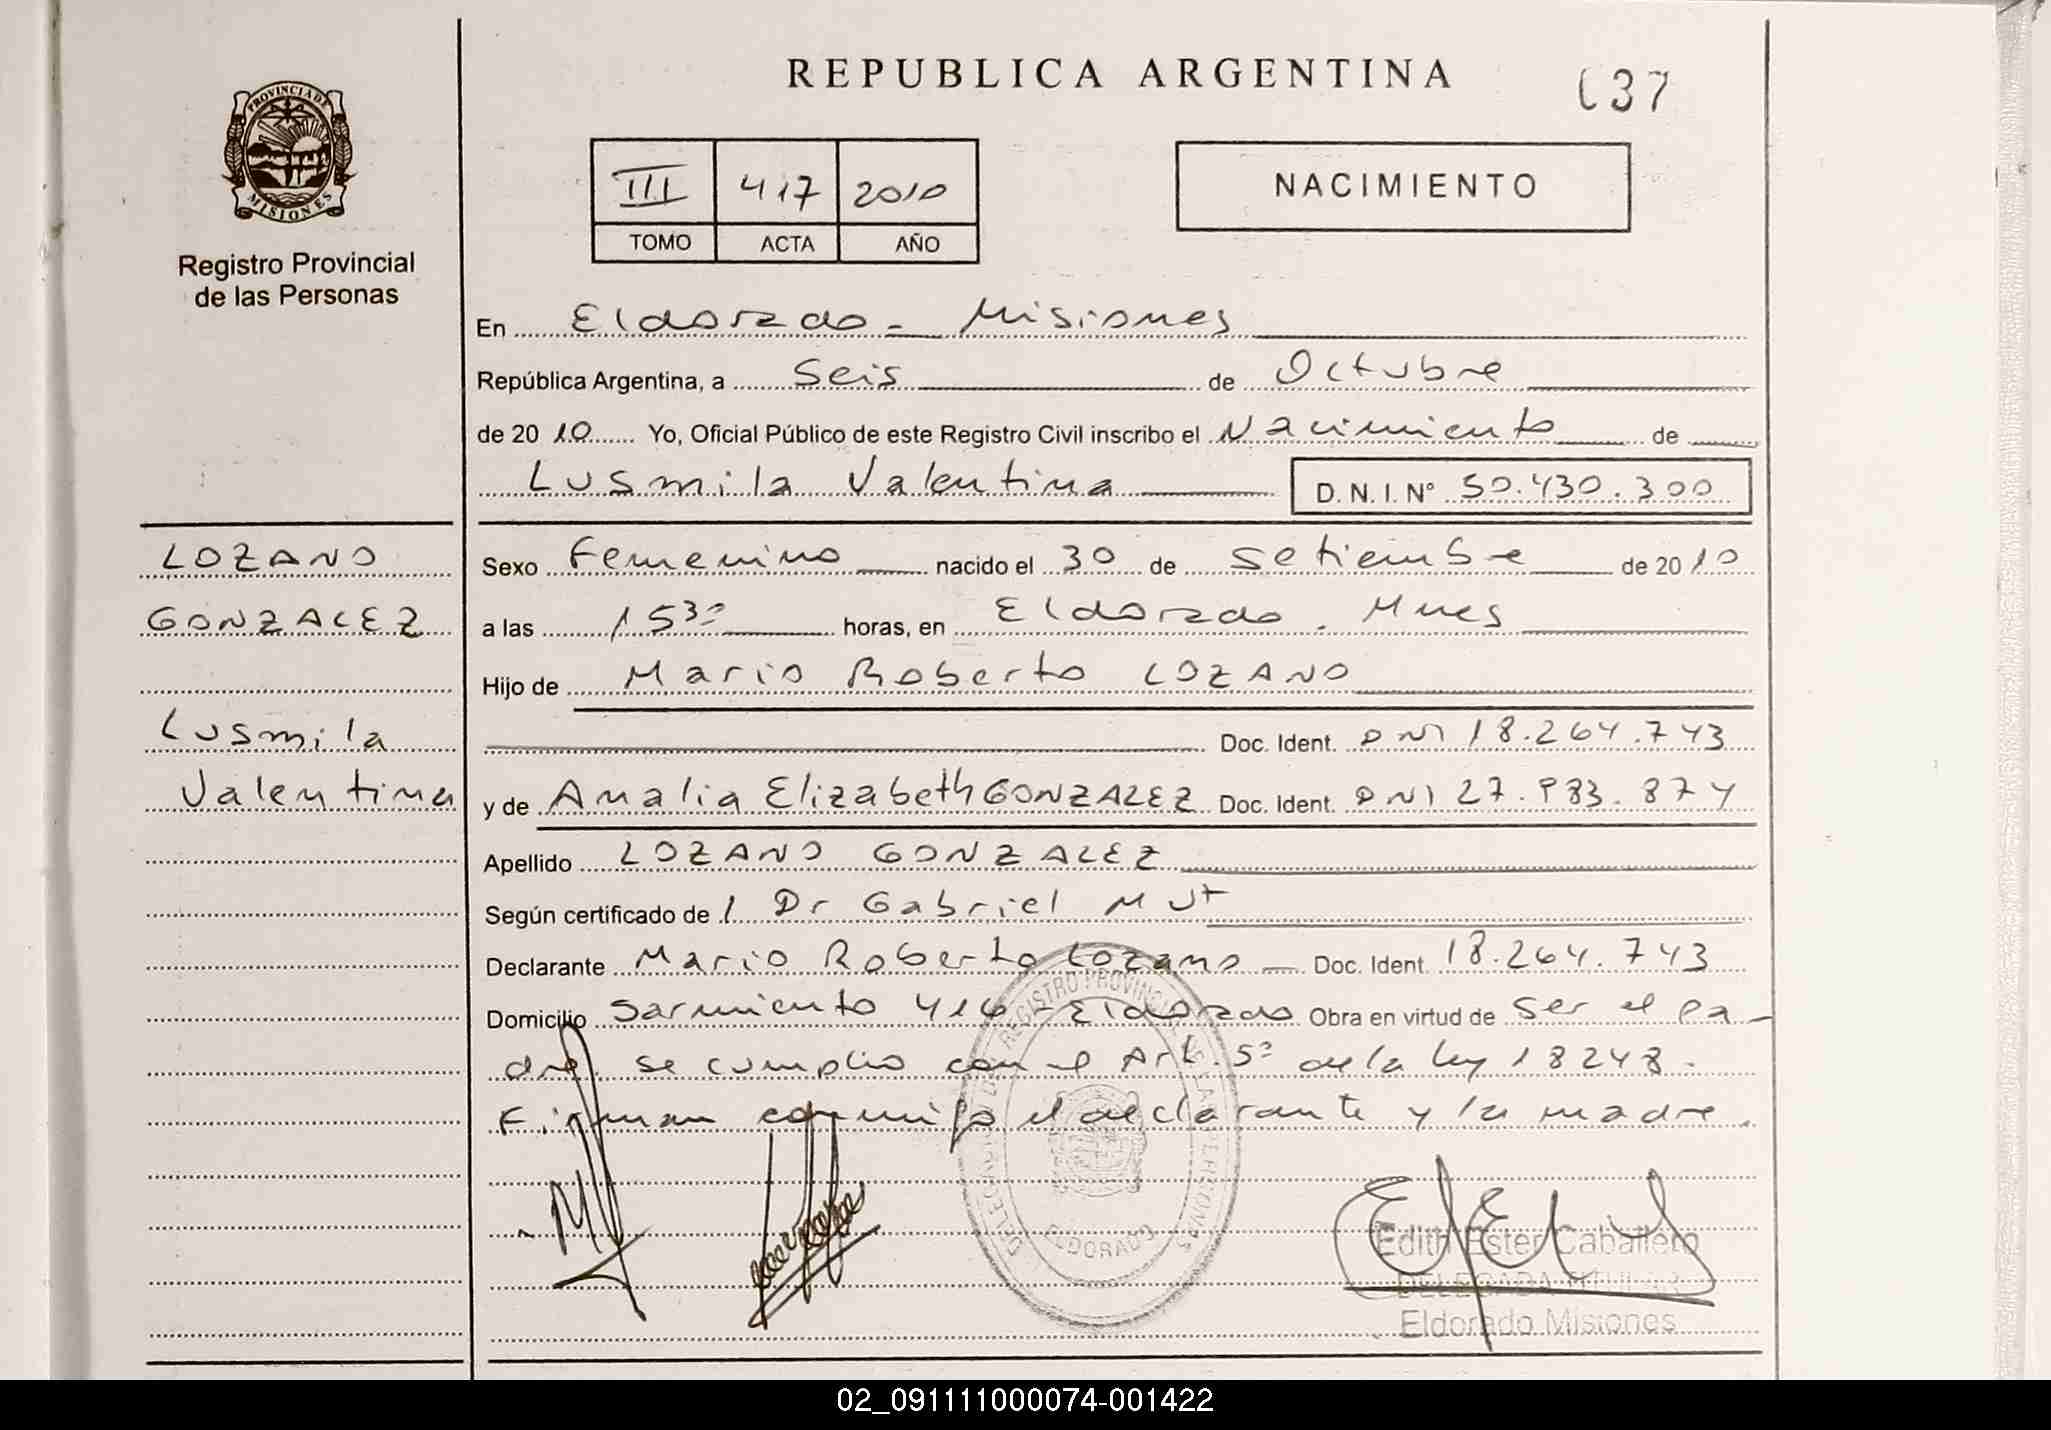 REPUBLICA ARGENTINA
637
PROVINCIA DE
MISIONES
Registro Provincial
de las Personas
III 417 2010
TOMO ACTA AÑO
NACIMIENTO
En Eldorado - Misiones
República Argentina, a Seis de Octubre
de 2010 Yo, Oficial Público de este Registro Civil inscribo el Nacimiento de
Lusmila Valentina D.N.I.Nº 50.430.300
LOZANO
GONZALEZ
Lusmila
Valentina
Sexo Femenino nacido el 30 de Setiembre de 2010
a las 15 30 horas, en Eldorado. Mnes
Hijo de Mario Roberto LOZANO
Doc. Ident. DNI 18.264.743
y de Amalia Elizabeth GONZALEZ Doc. Ident. DNI 27.983.874
Apellido LOZANO GONZALEZ
Según certificado de / Dr Gabriel Mut
Declarante Mario Roberto Lozano Doc. Ident. 18.264.743
Domicilio Sarmiento 416 - Eldorado Obra en virtud de ser el pa-
dre, se cumplio con el Art. 5º de la ley 18248.
Firman conmigo el declarante y la madre.
DELEGACION REGISTRO PROVINCIAL DE LAS PERSONAS
ELDORADO
Edith Ester Caballero
DELEGADA TITULAR
Eldorado Misiones
02_091111000074-001422